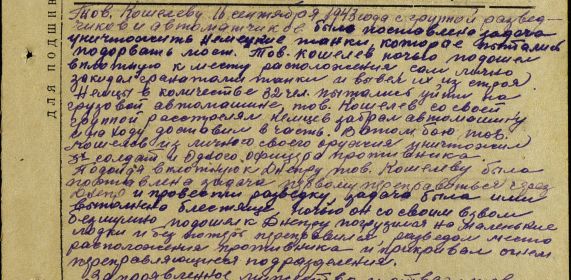 для подшив
Тов. Кошелеву 16 сентября 1943 года с группой развед-
чиков и автоматчиков была поставлена задача
уничтожить немецкие танки которые пытались
подорвать мост. Тов. Кошелев ночью подошел
вплотную к месту расположения сам лично
закидал гранатами танки и вывел их из строя.
Немцы в количестве 32 чел. пытались уйти на
грузовой автомашине, тов. Кошелев со своей
группой расстрелял немцев забрал автомашину
и на ходу доставил в часть. В этом бою тов.
Кошелев из личного своего оружия уничтожил
солдат и одного офицера противника.
Подойдя вплотную к Днепру тов. Кошелеву была
поставлена задача первому переправиться через
Днепр и провести разведку задача была им
выполнена блестяще ночью он со своим взводом
бесшумно подошел к Днепру погрузился на маленькие
лодки и без потерь переправился разведал место
расположения противника и прикрывал огнем
переправляющиеся подразделения.
За проявленное мужество и